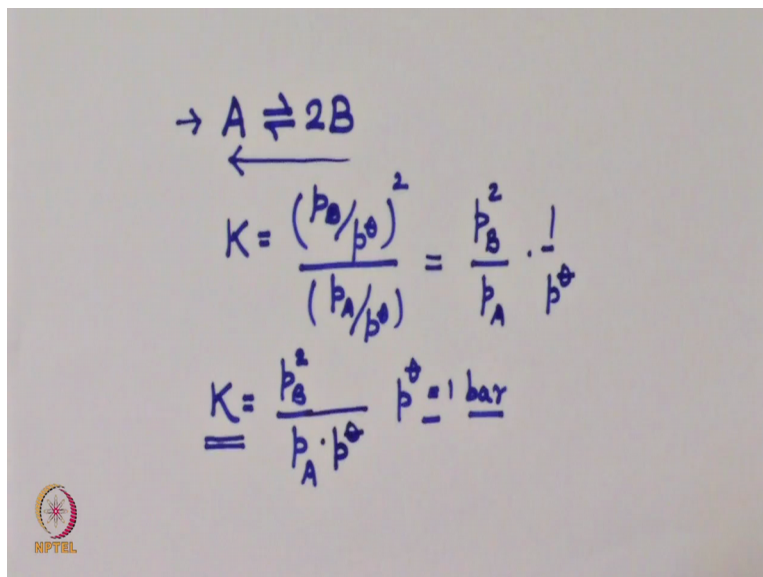 → A ⇌ 2B
←
K = (p_B/p^⊖)^2 / (p_A/p^⊖) = p_B^2 / p_A · 1 / p^⊖
K = p_B^2 / p_A · p^⊖   p^⊖ = 1 bar
NPTEL